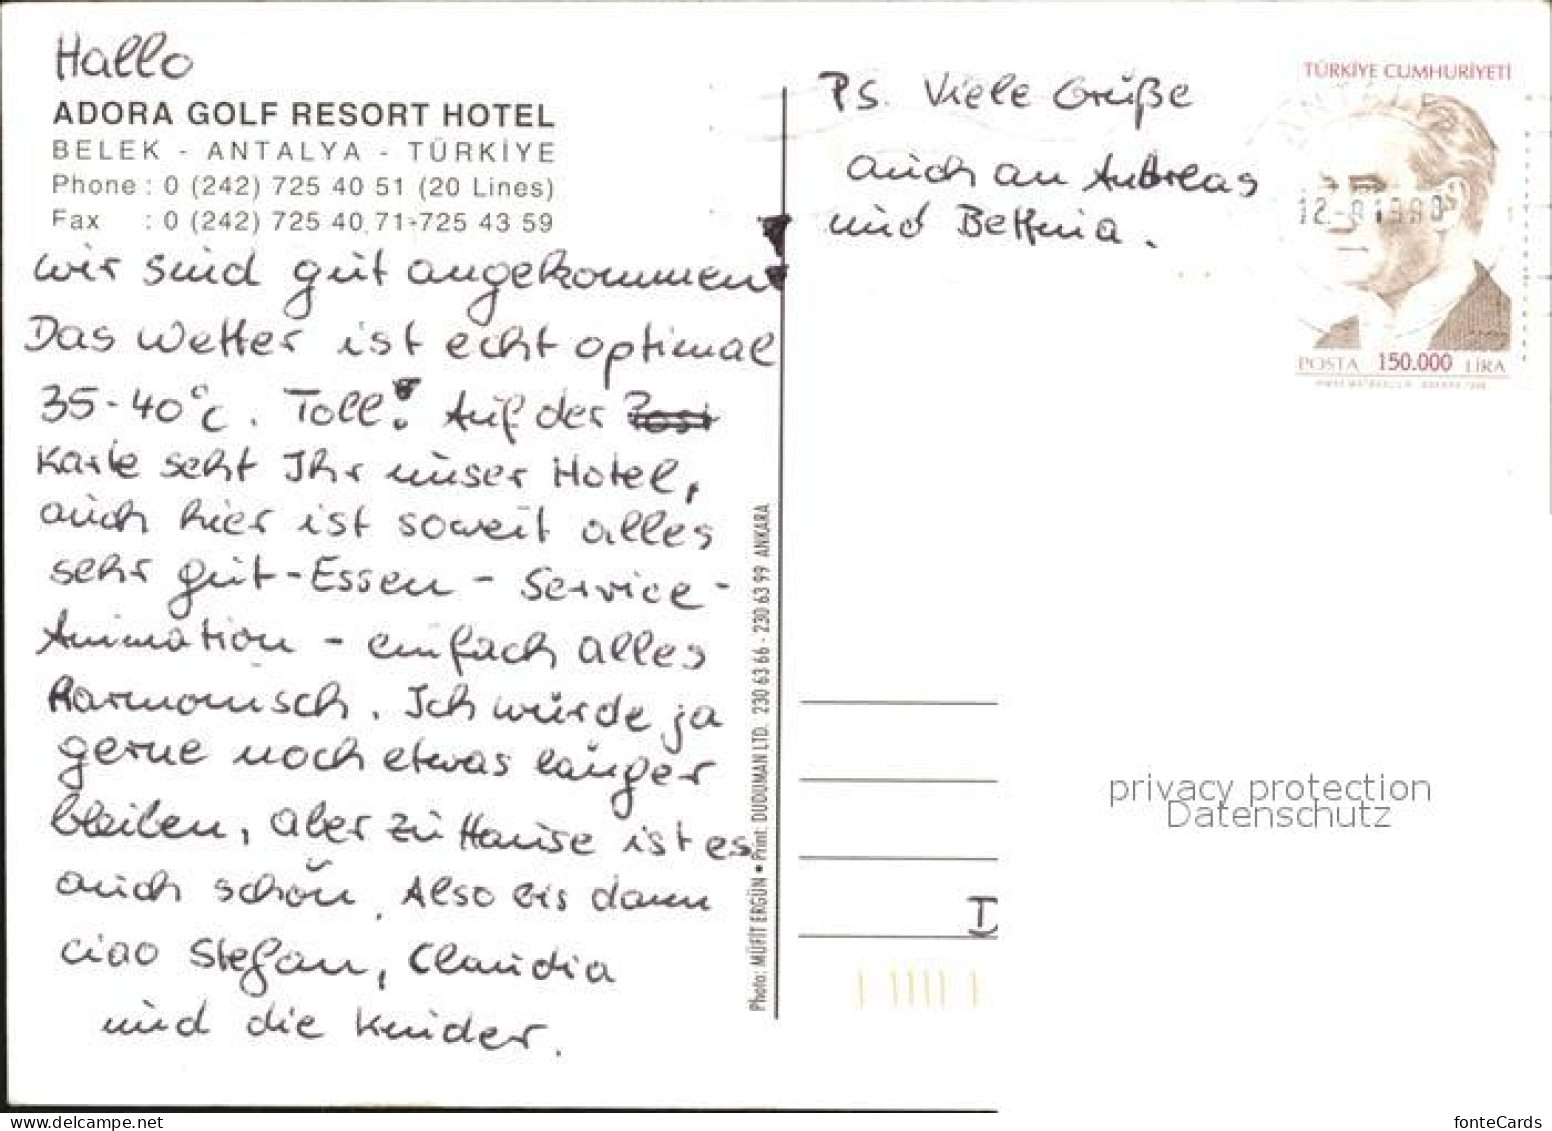 Hallo
ADORA GOLF RESORT HOTEL
BELEK - ANTALYA - TÜRKİYE
Phone : 0 (242) 725 40 51 (20 Lines)
Fax : 0 (242) 725 40 71-725 43 59
wir sind gut angekommen
Das Wetter ist echt optimal
35-40°C. Toll! Auf der
Karte seht Ihr unser Hotel,
auch hier ist soweit alles
sehr gut - Essen - Service -
Animation - einfach alles
Harmonisch. Ich würde ja
gerne noch etwas länger
bleiben, aber zu Hause ist es
auch schön. Also bis dann
ciao Stefan, Claudia
und die Kinder.
Photo: MÜFİT ERGÜN • Print: DUDUMAN LTD. 230 63 66 - 230 63 99 ANKARA
Ps. Viele Grüße
auch an Andreas
und Bettina.
TÜRKİYE CUMHURİYETİ
POSTA 150.000 LİRA
privacy protection
Datenschutz
www.delcampe.net
fonteCards